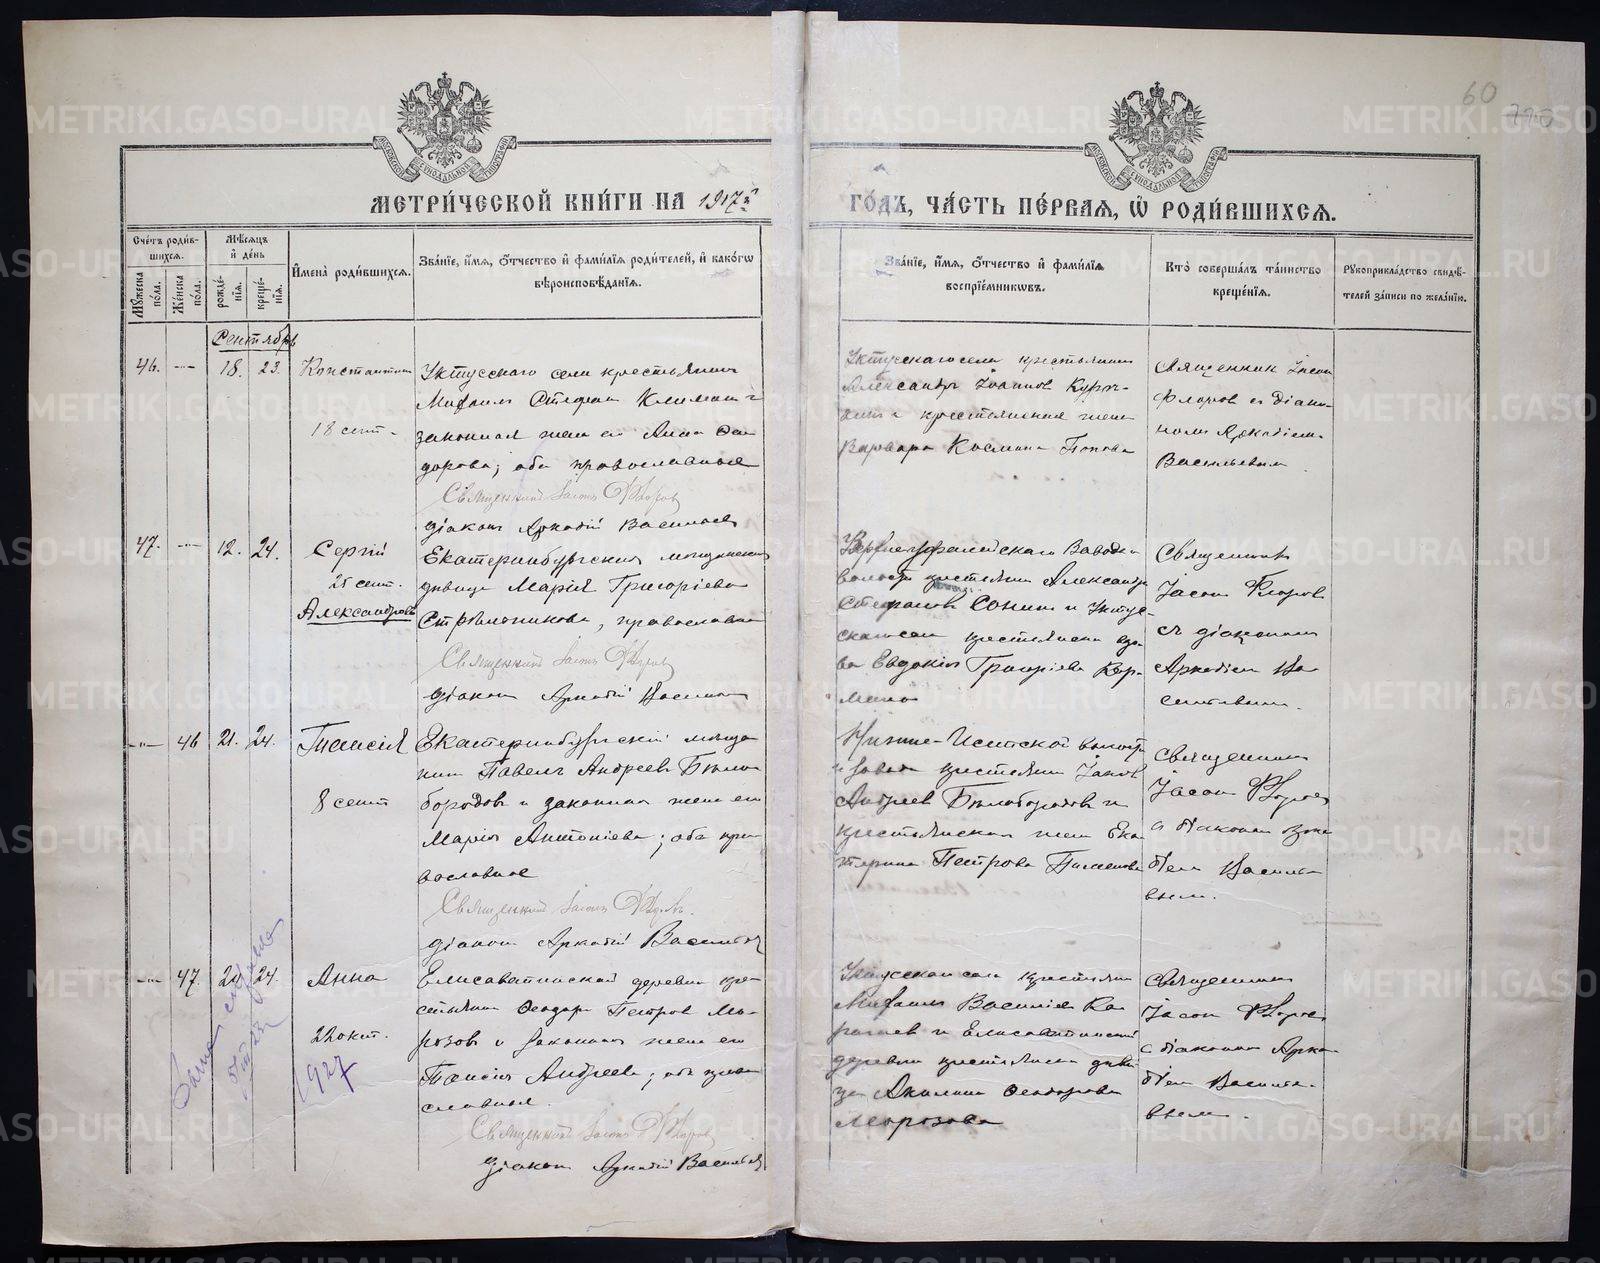 60
МЕТРИ́ЧЕСКОЙ КНИ́ГИ НА 1917й
ГО́ДЪ, ЧА́СТЬ ПЕ́РВАЯ, Ѡ РОДИ́ВШИХСЯ.
Счетъ роди́вшихся.
Му́жеска по́ла.
Же́нска по́ла.
Мѣ́сяцъ и де́нь
рожде́нія.
креще́нія.
Имена̀ роди́вшихся.
Зва́ніе, и́мя, о́тчество и фами́лія роди́телей, и како́гѡ
вѣроисповѣ́данія.
Зва́ніе, и́мя, о́тчество и фами́лія
воспріе́мниковъ.
Кто̀ соверша́лъ та́инство
креще́нія.
Рукоприкла́дство свидѣ́-
телей за́писи по жела́нію.
Сентябрь
46. -"- 18. 23. Константинъ
18 сент.
Уктусскаго села крестьянинъ
Михаилъ Стефан
законная жена его Анна Ѳео
дорова; оба православные
Священникъ Іасонъ Флоровъ
діаконъ Аркадій Васильевъ
Уктусскаго села крестьянин
Александръ Іоаннов
крестьянская жена
Варвара Космина Попова
Священник Іасон
Флоров с діако-
ном Аркадіем
Васильевым
47. -"- 12. 24. Сергій
25 сент.
Александровъ
Екатеринбургская мещанская
девица Марія Григоріева
Стрѣльникова, православна
Священникъ Іасонъ Флоровъ
діакон Аркадій Васильев
Верхне-уфалейскаго Завода
волости крестьянин Александр
Стефанов Сонин и Уктус-
скаго села крестьянская вдо-
ва Евдокія Григоріева
Священникъ
Іасон Флоров
съ діаконом
Аркадіем Ва
сильевым.
-"- 46 21. 24. Таисія
8 сент
Екатеринбургскій меща
нин Павелъ Андреев Бѣло
бородов и законная жена его
Марія Антоніева; оба пра-
вославные
Священникъ Іасонъ Флоровъ.
діакон Аркадій Васильев
Нижне-Исетской волости
и завода крестьянин Іаков
Андреев Бѣлобородов и
крестьянская жена Ека
терина Петрова
Священник
Іасон Флоров
с діаконом Арка
діем Василье
вым.
-"- 47. 24. Анна
22 окт.
1927
Елисаветинской деревни кре-
стьянин Ѳеодор Петров Мо-
розов и законная жена его
Таисія Андреева; оба право
славные.
Священникъ Іасонъ Флоровъ
діакон Аркадій Васильев
Уктусскаго села крестьянин
Михаилъ Василіев Ка
и Елисаветинской
деревни крестьянская деви
ца Акилина Ѳеодорова
Морозова
Священник
Іасон Флоров
с діаконом Арка
діем Василье
вым.